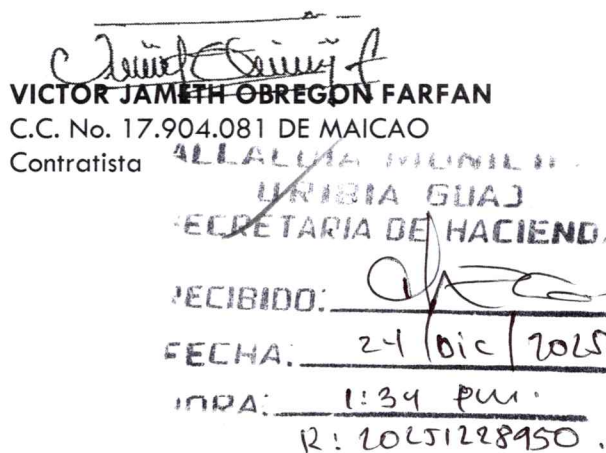 VICTOR JAMETH OBREGON FARFAN
C.C. No. 17.904.081 DE MAICAO
Contratista
URIBIA GUAJ
ECRETARIA DE HACIEND
ECIBIDO:
FECHA: 24 | Dic | 2025
1:34 pm.
R: 20251228950.